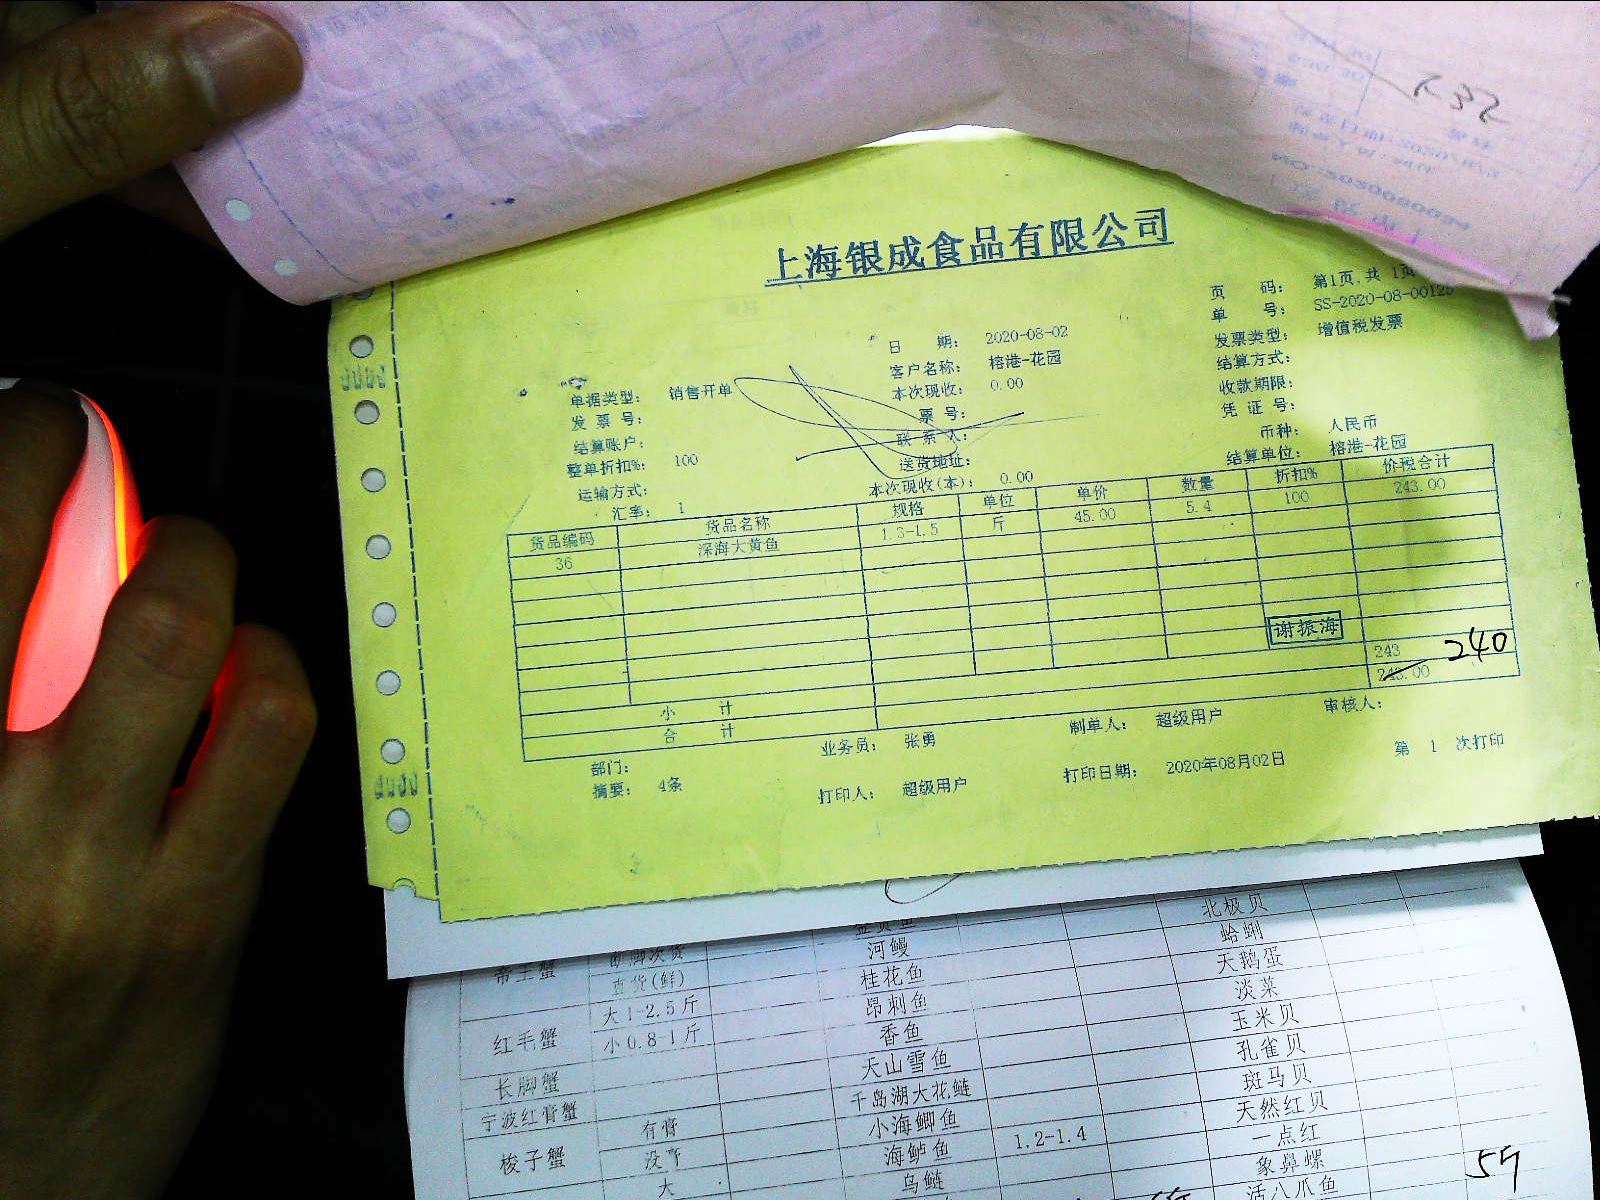 上海银成食品有限公司
页 码： 第1页,共 1页
单 号： SS-2020-08-00125
日 期： 2020-08-02
发票类型： 增值税发票
客户名称： 榕港-花园
结算方式：
单据类型： 销售开单
本次现收： 0.00
收款期限：
发 票 号：
票 号：
凭 证 号：
结算账户：
联 系 人：
币种： 人民币
整单折扣%： 100
送货地址：
结算单位： 榕港-花园
运输方式：
本次现收(本)： 0.00
汇率： 1
货品编码 货品名称 规格 单位 单价 数量 折扣% 价税合计
36 深海大黄鱼 1.3-1.5 斤 45.00 5.4 100 243.00
谢振海
小 计 243 240
合 计 243.00
部门： 业务员： 张勇 制单人： 超级用户 审核人：
摘要： 4条 打印人： 超级用户 打印日期： 2020年08月02日 第 1 次打印
北极贝
帝王蟹 河鳗 蛤蜊
直货(鲜) 桂花鱼 天鹅蛋
红毛蟹 大1-2.5斤 昂刺鱼 淡菜
小0.8-1斤 香鱼 玉米贝
长脚蟹 天山雪鱼 孔雀贝
宁波红膏蟹 千岛湖大花鲢 斑马贝
梭子蟹 有膏 小海鲫鱼 天然红贝
没膏 海鲈鱼 1.2-1.4 一点红
大 乌鲢 象鼻螺
活八爪鱼